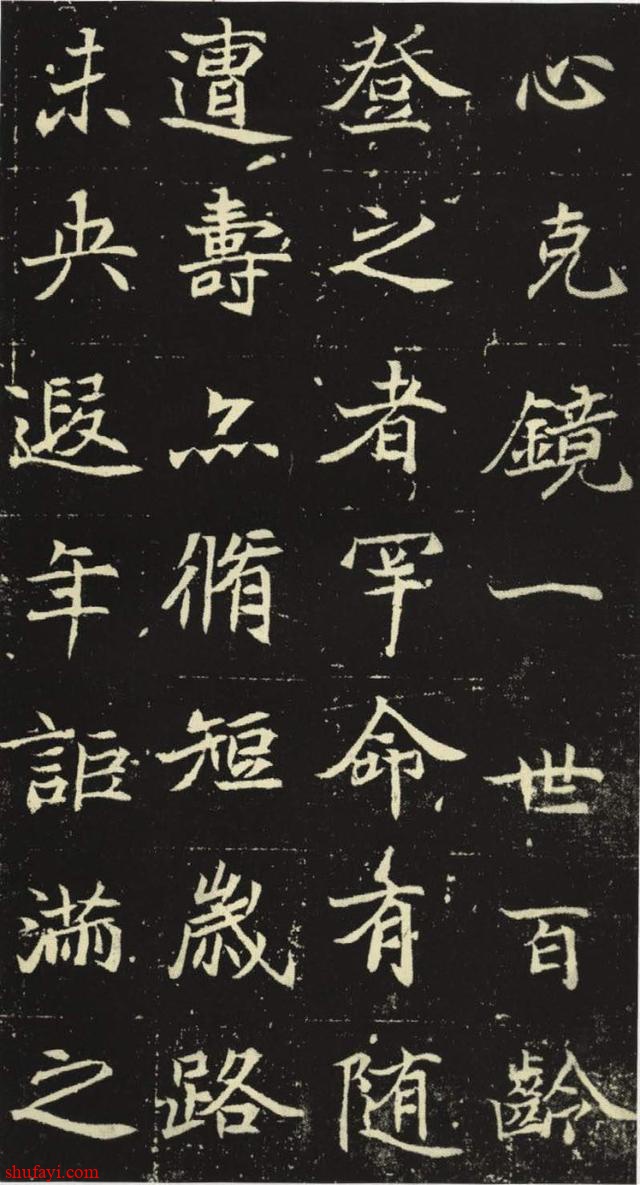 心克鏡一世百齡
登之者罕命有随
遭壽亦脩短歲路
未央遐年詎滿之
shufayi.com